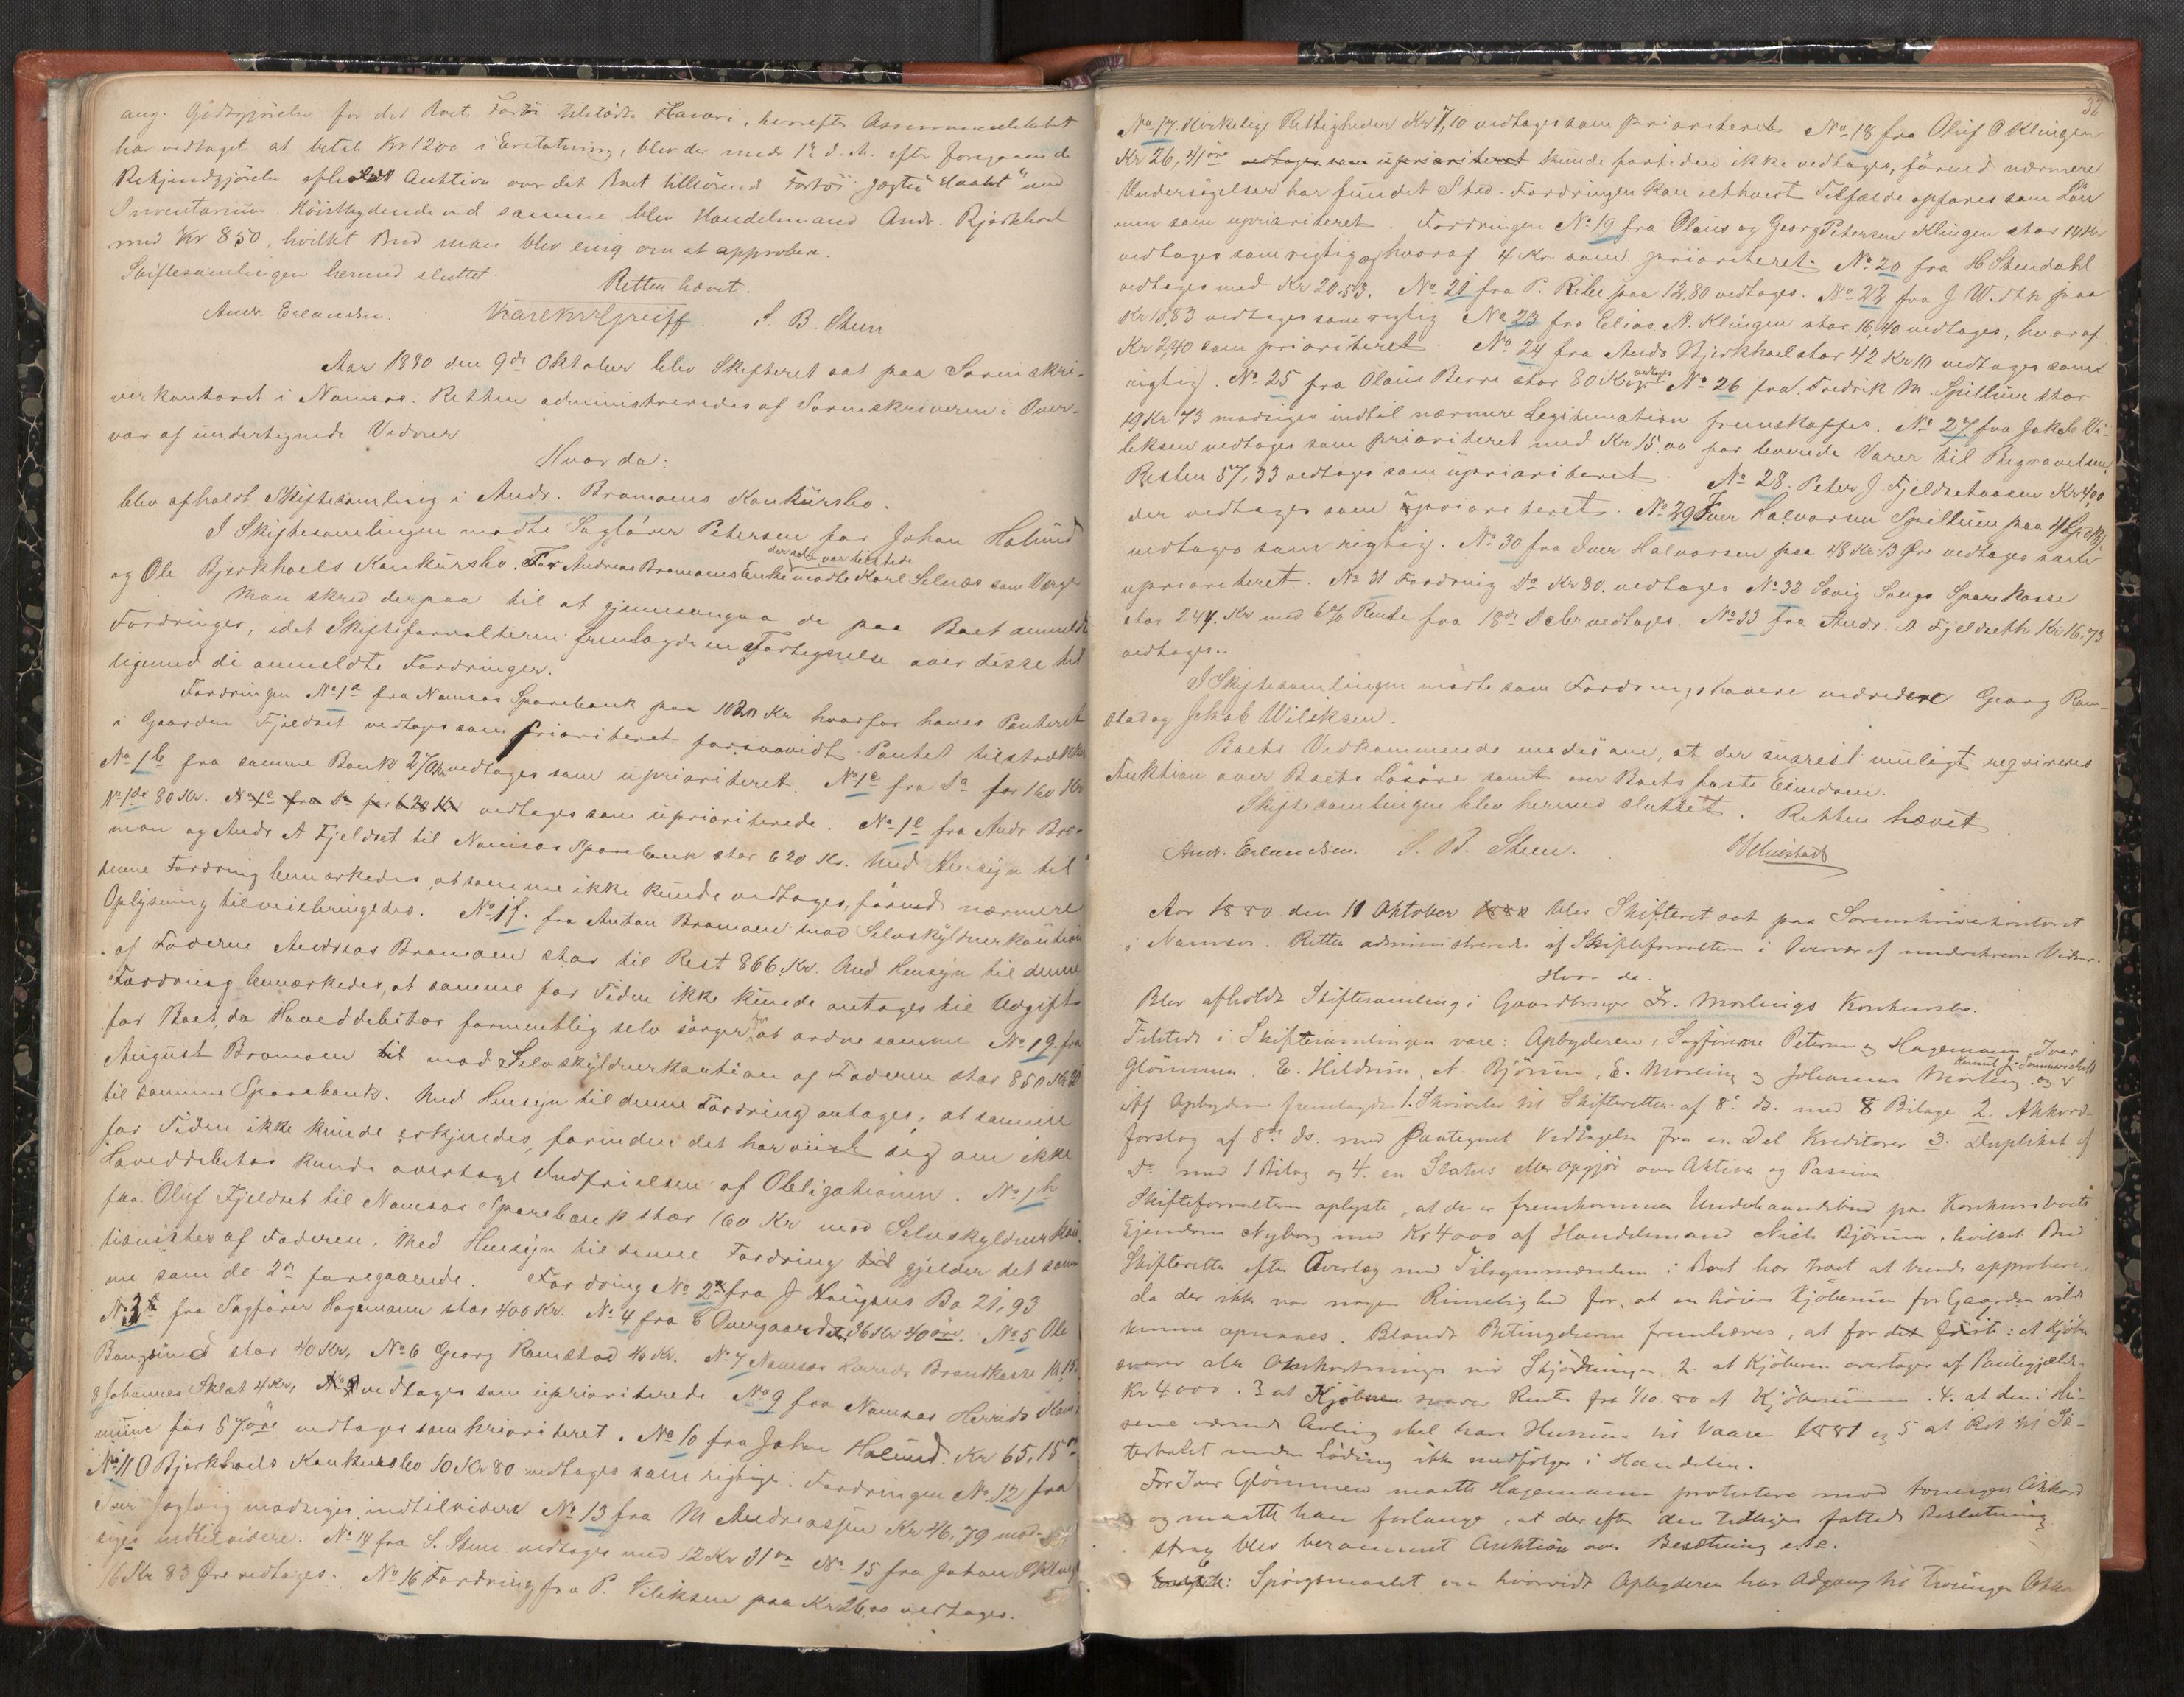 ang. Godtgjørelse for det Boet Fartøi tilstødte Havari, herefter Assuranceselskabet
har vedtaget at betale Kr 1200 i Erstatning, blev der under 1ste d. M. efter foregaaende
Bekjendtgjørelse afholdt Auktion over det Boet tilhørende Fartøi Jagten "Haabet" med
Inventarium. Høistbydende ved samme blev Handelsmand Andr. Bjørkhoel
med Kr 850, hvilket Bud man blev enig om at approbere.
Skiftesamlingen hermed sluttet.
Retten hævet.
Andr. Erlandsen. S. B. Steen
Aar 1880 den 9de Oktober blev Skifteret sat paa Sorenskri-
verkontoret i Namsos. Retten administreredes af Sorenskriveren i Over-
vær af undertegnede Vidner
Hvor da:
blev afholdt Skiftesamling i Andr. Bromoens Konkursbo.
I Skiftesamlingen mødte Sagfører Petersen for Johan Holund
og Ole Bjørkhoels Konkursbo. For Andreas Bromoens Enke der selv var tilstede mødte Karl Selnæs som Værge
Man skred derpaa til at gjennemgaa de paa Boet anmeldte
Fordringer, idet Skifteforvalteren fremlagde en Fortegnelse over disse til
ligemed de anmeldte Fordringer.
Fordringen No 1a fra Namsos Sparebank paa 1020 Kr hvorfor haves Panteret
i Gaarden Fjeldset vedtages som prioriteret forsaavidt Pantet tilstrækker
No 1b fra samme Bank 270 Kr vedtages som uprioriteret. No 1c fra Do for 160 Kr
No 1d 80 Kr. No 1e fra Do for 620 Kr vedtages som uprioriterede. No 1e fra Andr Bro-
moen og Andr A Fjeldset til Namsos Sparebank stor 620 Kr. Med Hensyn til
denne Fordring bemærkedes, at samme ikke kunde vedtages, førend nærmere
Oplysning tilveiebringedes. No 1f. fra Anton Bromoen mod Selvskyldnerkaution
af Faderen Andreas Bromoen stor til Rest 866 Kr. Med Hensyn til denne
Fordring bemærkedes, at samme for Tiden ikke kunde antages til Udgift
for Boet, da Hoveddebitor formentlig selv sørger for at ordne samme No 1g. fra
August Bromoen til mod Selvskyldnerkaution af Faderen stor 850 Kr
til samme Sparebank. Med Hensyn til denne Fordring antages, at samme
for Tiden ikke kunde erkjendes, forinden det har viist sig om ikke
Hoveddebitor kunde overtage Indfrielsen af Obligationen. No 1h
fra Oluf Fjeldset til Namsos Sparebank stor 160 Kr mod Selvskyldnerkau-
tionister af Faderen. Med Hensyn til denne Fordring til gjelder det sam-
me som de 2de foregaaende. Fordring No 2 fra J Haugans Bo 21,93
No 3 fra Sagfører Hagemann stor 400 Kr. No 4 fra C Overgaard 36 Kr 40 øre. No 5 Ole
Bangsund stor 40 Kr, No 6 Georg Ramstad 40 Kr. No 7 Namsos Herreds Brandkasse
8 Johannes Sklet 4 Kr, vedtages som uprioriterede No 9 fra Namsos Herreds Kom-
mune for 57 øre vedtages som prioriteret. No 10 fra Johan Holund Kr 65,15
No 11 O Bjørkhoels Konkursbo 10 Kr 80 vedtages som rigtige. Fordringen No 12 fra
Iver Fagtvig modsiges indtilvidere No 13 fra M Andreassen Kr 46,79 mod-
siges indtilvidere. No 14 fra S. Steen vedtages med 12 Kr 31 øre No 15 fra Johan
16 Kr 83 Øre vedtages. No 16 Fordring fra P. Viliksen paa Kr 26,00 vedtages.
32
No 17. Kirkelige Rettigheder Kr 7,10 vedtages som prioriterede No 18 fra Oluf P Klingen
Kr 26,41 øre vedtages som uprioriteret kunde fortiden ikke vedtages, førend nærmere
Undersøgelser har fundet Sted. Fordringen kan iethvert Tilfælde opføres som
men som uprioriteret. Fordringen No 19 fra Olaus og Georg Petersen Klingen stor 14 Kr
vedtages som rigtig og hvoraf 4 Kr som prioriteret. No 20 fra H Stendahl
vedtages med Kr 20,53. No 21 fra P. Ribe paa 12,80 vedtages. No 22 fra J Wedth paa
Kr 15,83 vedtages som rigtig No 23 fra Elias A. Klingen stor 16,40 vedtages, hvoraf
Kr 2,40 som prioriteret. No 24 fra Andr Bjerkhoel stor 42 Kr 10 vedtages som
rigtig. No 25 fra Olaus Berre stor 80 Kr vedtages No 26 fra Fredrik M. Spillum stor
19 Kr 73 modsiges indtil nærmere Legitimation fremskaffes. No 27 fra Jakob Vi-
liksen vedtages som prioriteret med Kr 15,00 for leverede Varer til Begravelsen,
Resten 57,33 vedtages som uprioriteret. No 28. Peter J. Fjeldsetaasen Kr 4,00
der vedtages som uprioriteret. No 29 Iver Halvorsen Spillum paa
vedtages som rigtig. No 30 fra Iver Halvorsen paa 48 Kr 13 Øre vedtages som
uprioriteret. No 31 Fordring Do Kr 80. vedtages No 32 Sævig Sogns Sparekasse
stor 244 Kr med 6% Rente fra 18de Debr vedtages. No 33 fra Andr. A Fjeldseth Kr 16,73
vedtages..
I Skiftesamlingen mødte som Fordringshavere vedvidere Georg Ram-
stad og Jakob Wiliksen.
Boets Vedkommende enedes om, at der snarest muligt requireres
Auktion over Boets Løsøre samt over Boets faste Eiendom.
Skiftesamlingen blev hermed sluttet. Retten hævet.
Andr. Erlandsen. S. B. Steen.
Aar 1880 den 11 Oktober 1880 blev Skifteret sat paa Sorenskriverkontoret
i Namsos. Retten administreredes af Skifteforvalteren i Overvær af underskrevne Vidner.
Hvor da.
Blev afholdt Skiftesamling i Gaardbruger Fr. Mørlings Konkursbo.
Tilstede i Skiftesamlingen vare: Opbyderen, Sagførerne Petersen og Hagemann, Iver
Glømmen, E. Hildrum, A. Bjørum, E. Mørling og Johannes Mørling, og Knud J. Tømmeraas
Af Opbyderen fremlagdes 1. Skrivelse til Skifteretten af 8de ds. med 8 Bilage 2. Akkord-
forslag af 8de ds. med Paategnet Vedtagelse fra en Del Kreditorer 3. Duplikat af
Do med 1 Bilag og 4. en Status eller Opgjør over Aktiva og Passiva.
Skifteforvalteren oplyste, at der er fremkommen Underhaandsbud paa Konkursboets
Ejendom Nyborg med Kr 4000 af Handelsmand Niels Bjørum, hvilket Bud
Skifteretten efter Overlæg med Tilsynsmændene i Boet har troet at burde approbere,
da der ikke var nogen Rimelighed for, at en høiere Kjøbesum for Gaarden vilde
kunne opnaaes. Blandt Betingelserne fremhæves, at for det første: at Kjøber
svarer alle Omkostninger ved Skjødningen 2. at Kjøberen overtager af Pantegjæld
Kr 4000. 3 at Kjøberen svarer Rente fra 1/10. 80 af Kjøbesummen. 4. at den i Hu-
sene værende Avling skal have Husrum til Vaaren 1881 og 5 at Ret til Sæ-
terbolet under Løding ikke medfølger i Handelen.
For Iver Glømmen maatte Hagemann protestere mod tvungen Akkord
og maatte han forlange, at der efter den tidligere fattede Beslutning
strax blev berammet Auktion over Besætning etc.
Spørgsmaalet om hvorvidt Opbyderen har Adgang til tvungen Akko